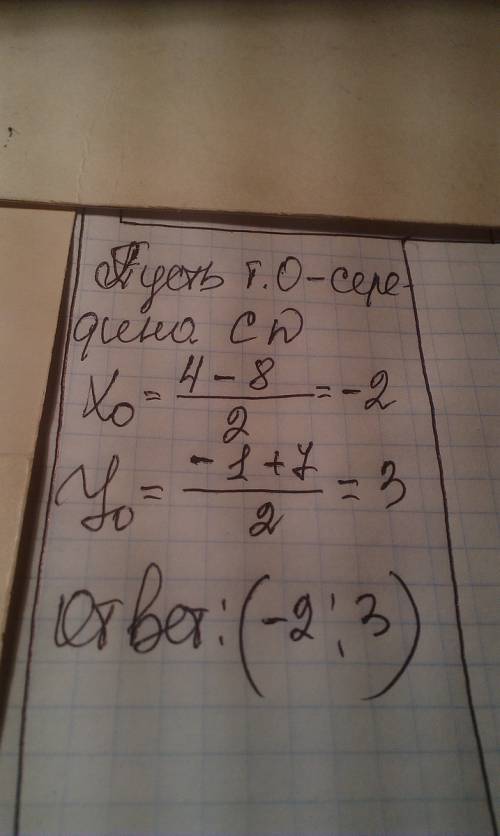 Пусть т. О - сере-
дина СD
X₀ = (4 - 8)/2 = -2
У₀ = (-1 + 7)/2 = 3
Ответ: (-2; 3)